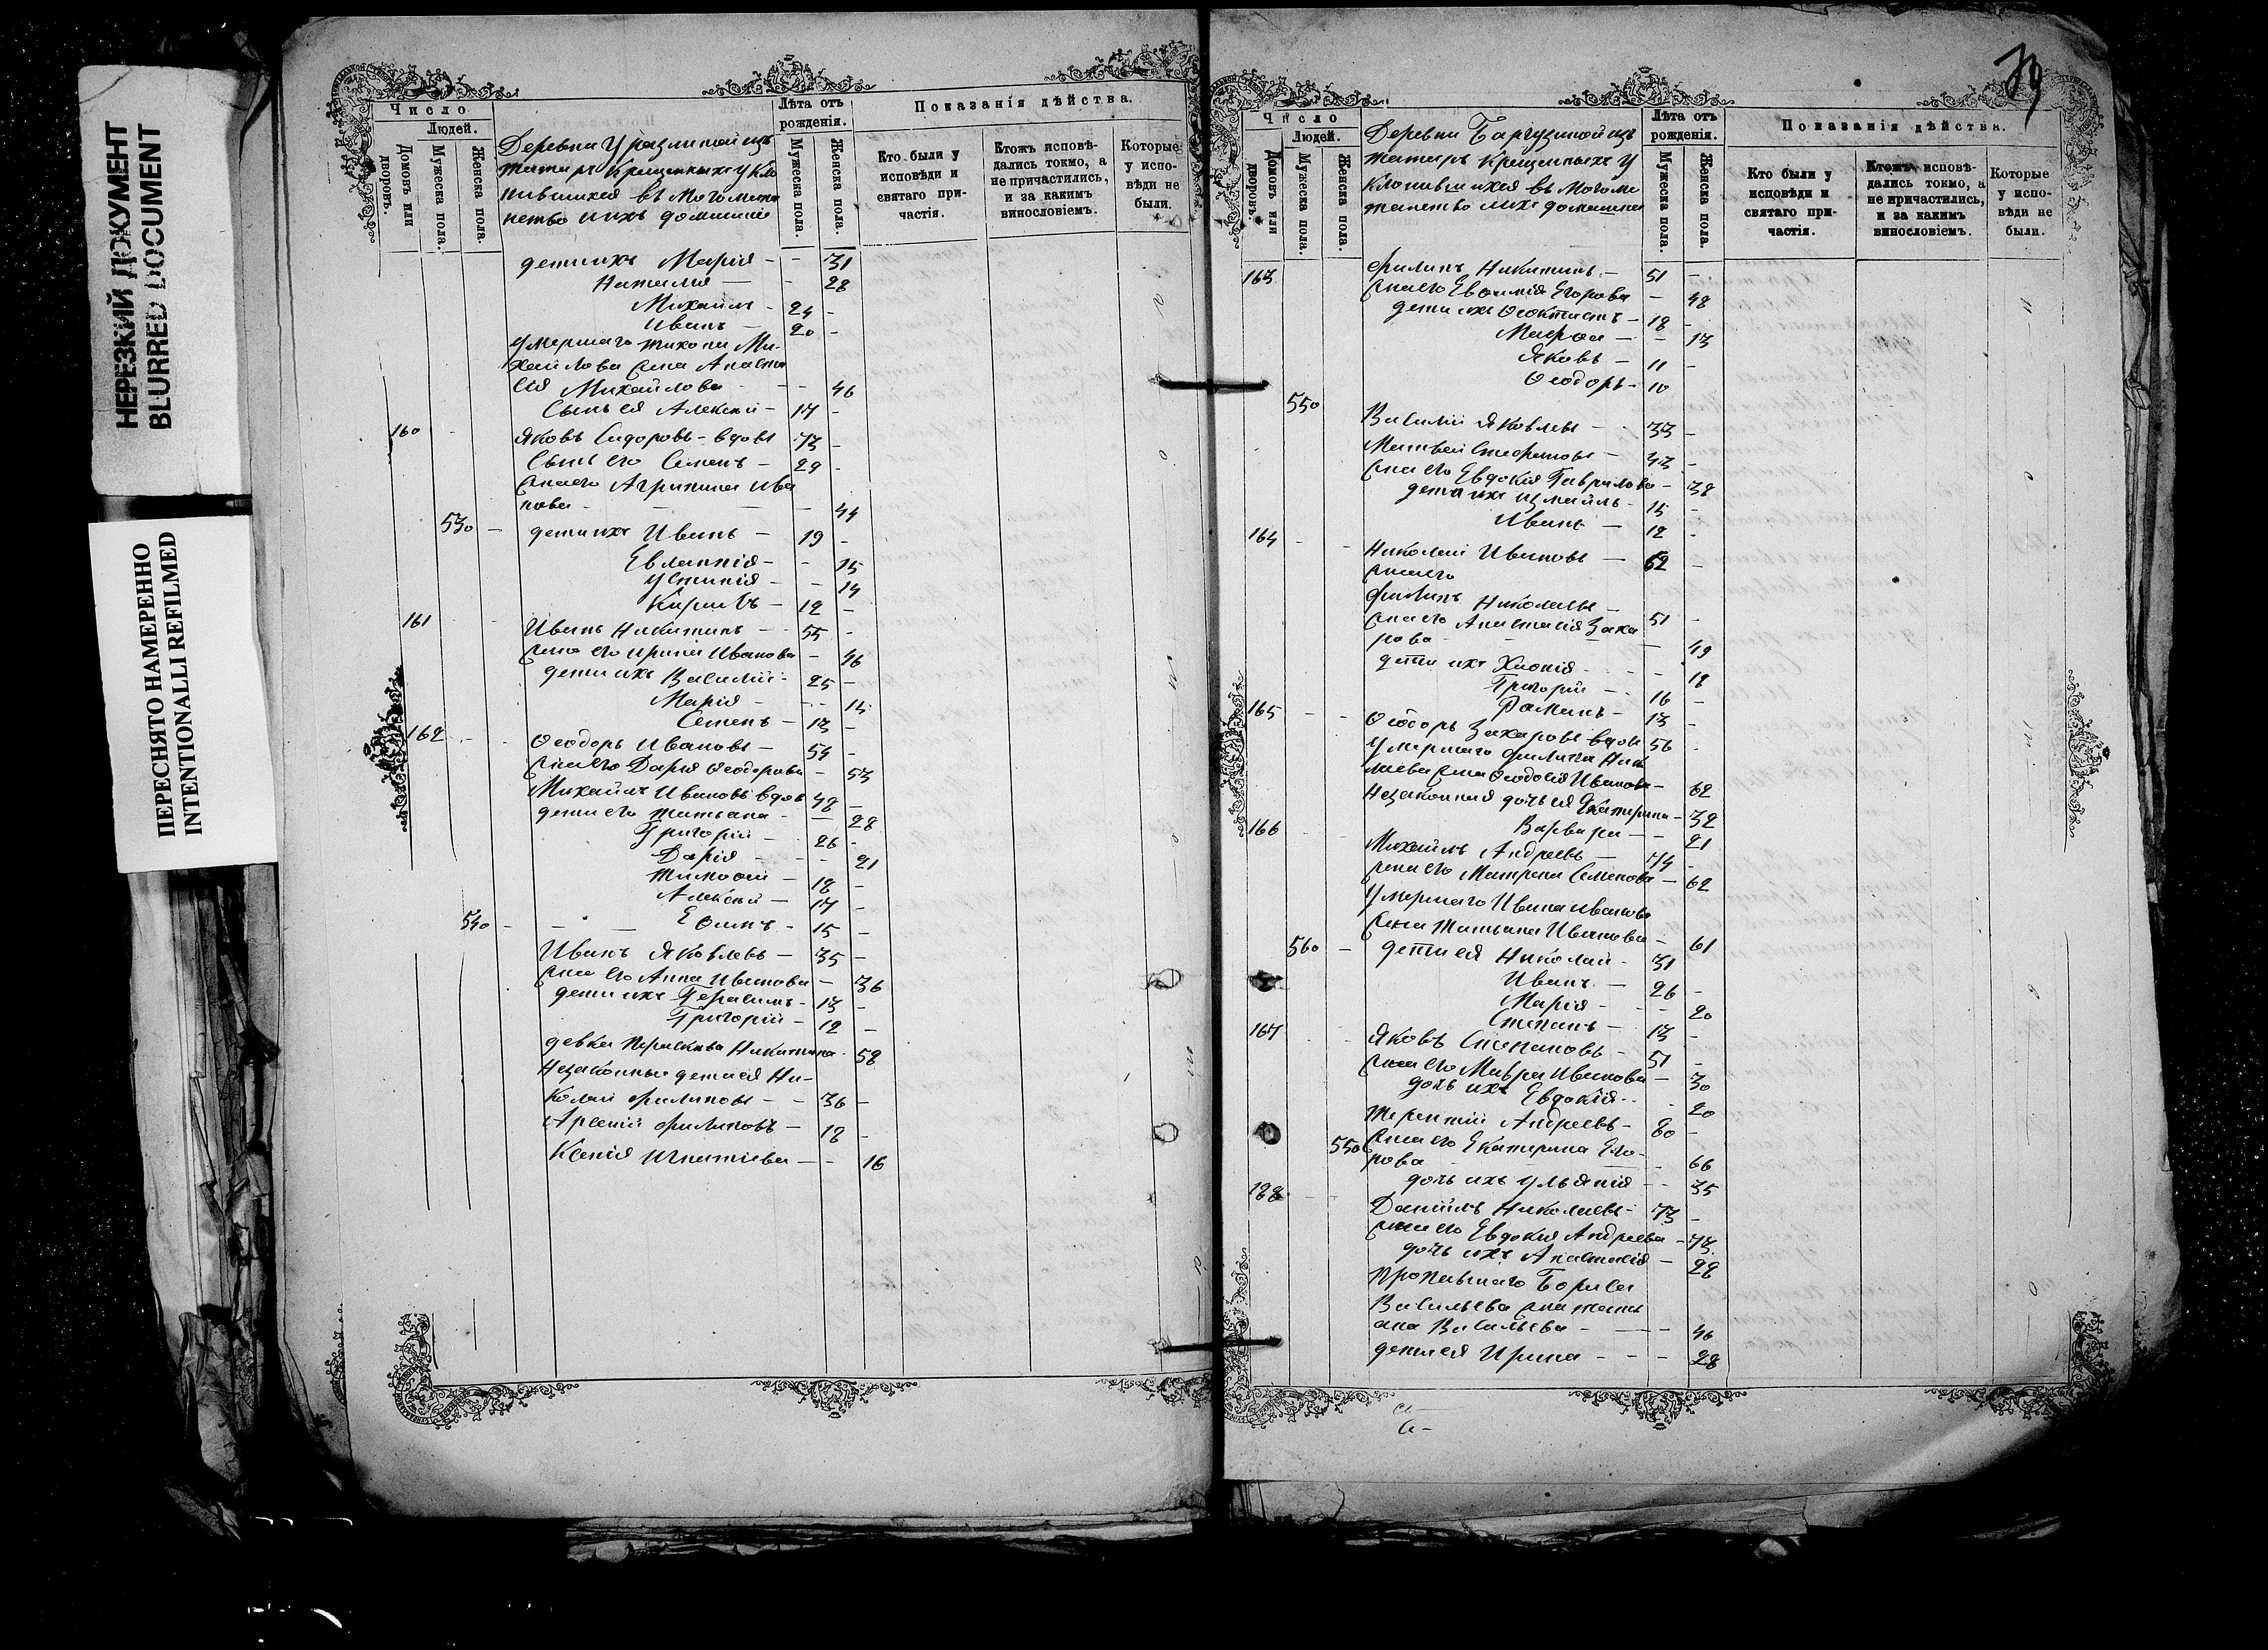 НЕРЕЗКИЙ ДОКУМЕНТ
BLURRED DOCUMENT
ПЕРЕСНЯТО НАМЕРЕННО
INTENTIONALLI REFILMED
Число
Людей.
Домовъ или дворовъ.
Мужеска пола.
Женска пола.
Деревни Уразлиной изъ
татаръ крещенныхъ укло
нившихся въ могомета
нство и ихъ домашніе
Лѣта отъ рожденія.
Мужеска пола.
Женска пола.
Показанія дѣйства.
Кто были у исповѣди и святаго причастія.
Ктожъ исповѣдались токмо, а не причастились, и за какимъ винословіемъ.
Которые у исповѣди не были.
дети ихъ Марія - - 31
Наталія - - 28
Михаилъ - 24 -
Иванъ - 20 -
умершаго Тихона Ми-
хайлова жена Анаста
сія Михайлова - - 46
Сынъ ея Алексей - 17 -
160 Яковъ Сидоровъ - вдовъ 73 -
Сынъ его Семенъ - 29 -
жена его Агрипина Ива
нова - - 44
530 - дети ихъ Иванъ - 19 -
Евлампія - - 15
Устинія - - 14
Кирилъ - 12 -
161 Иванъ Никитинъ - 55 -
жена его Ирина Иванова - 46
дети ихъ Василій - 25 -
Марія - - 15
Семенъ - 13 -
162 Ѳеодоръ Ивановъ - 54 -
жена его Дарья Ѳеодорова - 53
Михаилъ Ивановъ вдов 48 -
дети его Татьяна - - 28
Григорій - 26 -
Дарія - - 21
Тимоѳей - 18 -
Алексей - 17 -
540 - - Еѳимъ - 15 -
Иванъ Яковлевъ - 35 -
жена его Анна Иванова - 36
дети ихъ Герасимъ - 13 -
Григорій - 12 -
девка Параскева Никитина - 58
Незаконныи дети ея Ни-
колай Филиповъ - - 36 -
Арсеній Филиповъ - 18 -
Ксенія Игнатіева - - 16
79
Число
Людей.
Домовъ или дворовъ.
Мужеска пола.
Женска пола.
Деревни Баргузиной изъ
татаръ крещенныхъ у
клонившихся въ могоме
танство и ихъ домашніе
Лѣта отъ рожденія.
Мужеска пола.
Женска пола.
Показанія дѣйства.
Кто были у исповѣди и святаго причастія.
Ктожъ исповѣдались токмо, а не причастились, и за какимъ винословіемъ.
Которые у исповѣди не были.
163 Филипъ Никитинъ - 51 -
жена его Евѳимія Егорова - 48
дети ихъ Ѳеоктистъ - 18 -
Марѳа - - 13
Яковъ - 11 -
Ѳеодоръ - 10
550
Василій Яковлевъ - 33 -
Матвей Стефановъ - 43 -
жена его Евдокія Гаврилова - 38
дети ихъ Измаилъ - 15 -
Иванъ - 12 -
164 - - Николай Ивановъ - 62 -
жена его
Филипъ Николаевъ -
жена его Анастасія Заха 51 -
рова - - 49
дети ихъ Хіонія - - 18
Григорій - 16 -
Романъ - 13 -
165 - - Ѳеодоръ Захаровъ вдов 56 -
умершаго Филипа Нико
лаева жена Ѳеодосія Иванова - 62
Незаконная дочь ея Екатирина - 32
Варвара - - 21
166 Михаилъ Андреевъ - 74 -
жена его Матрена Семенова - 62
Умершаго Ивана Иванова
жена Татьяна Иванова - 61
560 - дети ея Николай - 31
Иванъ - 26 -
Марія - - 20
Степанъ - 13 -
167 Яковъ Степановъ - 51 -
жена его Мавра Иванова - 30
дочь ихъ Евдокія - - 20
Терентій Андреевъ - 80 -
550 жена его Екатирина Его-
рова - - 66
дочь ихъ Ульянія - - 35
188 Даніилъ Николаевъ - 73 -
жена его Евдокія Андреева - 73
дочь ихъ Анастасія - 28
пропавшаго Бориса
Васильева жена Тать
яна Васильева - - - 46
дети ея Ирина - - - 28